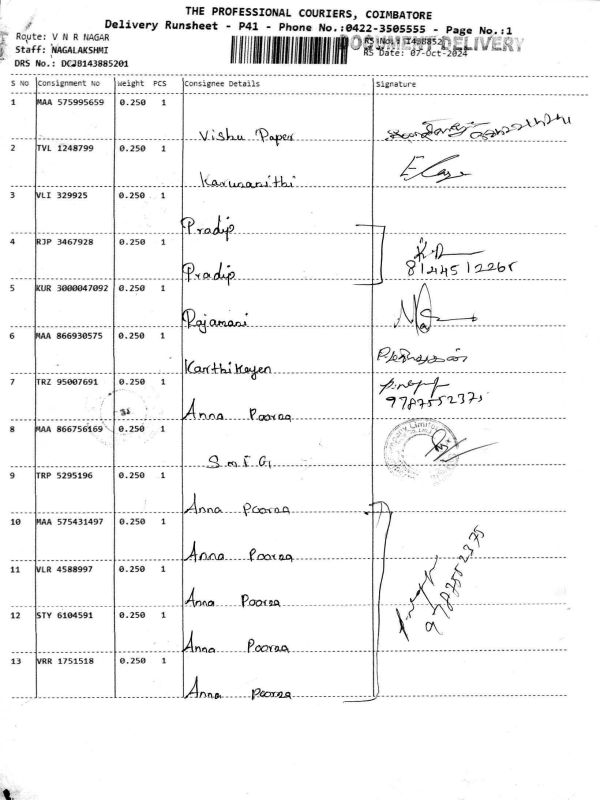 THE PROFESSIONAL COURIERS, COIMBATORE
Delivery Runsheet - P41 - Phone No.:0422-3505555 - Page No.:1
Route: V N R NAGAR
DOCUMENT DELIVERY
Staff: NAGALAKSHMI
RS Date: 07-Oct-2024
DRS No.: DCJB143885201
S No Consignment No Weight PCS Consignee Details Signature
1 MAA 575995659 0.250 1
Vishu Paper
2 TVL 1248799 0.250 1
Karunanithi
3 VLI 329925 0.250 1
Pradip
4 RJP 3467928 0.250 1
Pradip 8144512265
5 KUR 3000047092 0.250 1
Rajamani
6 MAA 866930575 0.250 1
Karthikeyen
7 TRZ 95007691 0.250 1
Anna Pooraa 9787552375
8 MAA 866756169 0.250 1
S m I G
9 TRP 5295196 0.250 1
Anna Pooraa
10 MAA 575431497 0.250 1
Anna Pooraa
11 VLR 4588997 0.250 1
Anna Pooraa
9787552375
12 STY 6104591 0.250 1
Anna Pooraa
13 VRR 1751518 0.250 1
Anna Pooraa